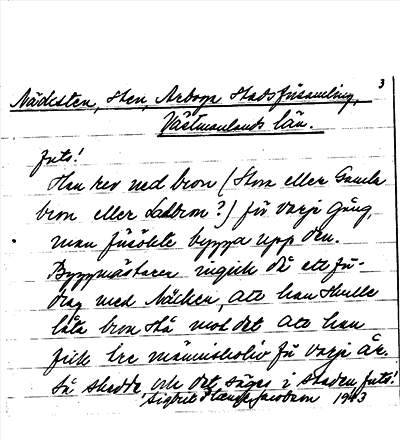 3
Näcksten, Sten, Arboga Stadsförsamling,
Västmanlands län.
Juts!
Han rev ned bron (Stora eller Gamla
bron eller Ladbron?) för varje gång,
man försökte bygga upp den.
Byggmästaren ingick då ett för-
drag med Näcken, att han skulle
låta bron stå mot det att han
fick tre människoliv för varje år.
Så skedde, och det säges i staden Juts!
Sigbrit Jacobson 1943